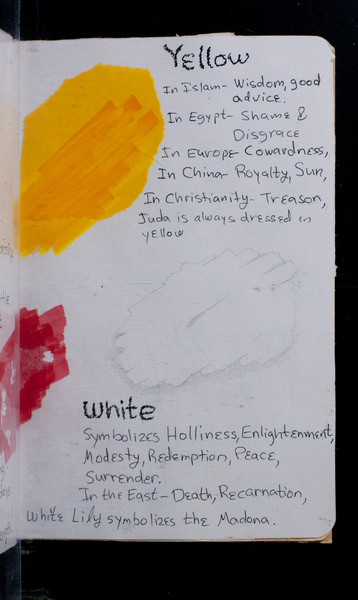 Yellow
In Islam- Wisdom, good
advice.
In Egypt- Shame &
Disgrace
In Europe- Cowardness,
In China- Royalty, Sun,
In Christianity- Treason,
Juda is always dressed in
yellow
White
Symbolizes Holliness, Enlightenment,
Modesty, Redemption, Peace,
Surrender.
In the East- Death, Recarnation,
White Lily symbolizes the Madona.